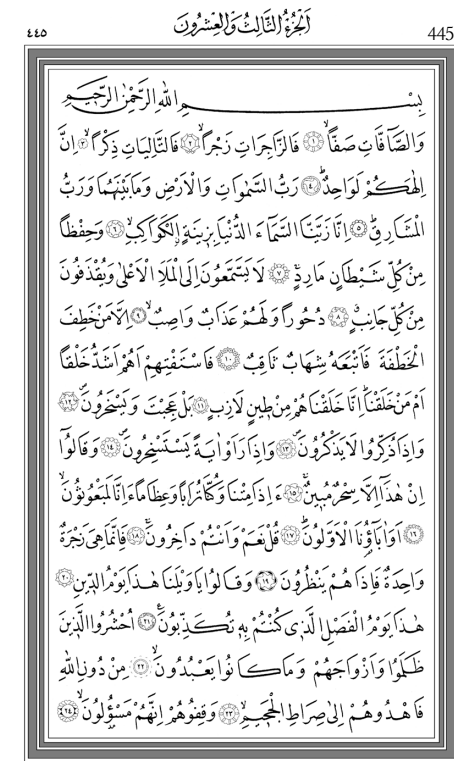 ٤٤٥ اَلْجُزْءُ الثَّالِثُ وَالْعِشْرُونَ 445
بِسْــــمِ اللّٰهِ الرَّحْمٰنِ الرَّحٖيمِ
وَالصَّٓافَّاتِ صَفًّاۙ ﴿١﴾ فَالزَّاجِرَاتِ زَجْرًاۙ ﴿٢﴾ فَالتَّالِيَاتِ ذِكْرًاۙ ﴿٣﴾ اِنَّ
اِلٰهَكُمْ لَوَاحِدٌۜ ﴿٤﴾ رَبُّ السَّمٰوَاتِ وَالْاَرْضِ وَمَا بَيْنَهُمَا وَرَبُّ
الْمَشَارِقِۜ ﴿٥﴾ اِنَّا زَيَّنَّا السَّمَٓاءَ الدُّنْيَا بِزٖينَةٍۨ الْكَوَاكِبِۙ ﴿٦﴾ وَحِفْظًا
مِنْ كُلِّ شَيْطَانٍ مَارِدٍۚ ﴿٧﴾ لَا يَسَّمَّعُونَ اِلَى الْمَلَأِ الْاَعْلٰى وَيُقْذَفُونَ
مِنْ كُلِّ جَانِبٍۗ ﴿٨﴾ دُحُورًا وَلَهُمْ عَذَابٌ وَاصِبٌۙ ﴿٩﴾ اِلَّا مَنْ خَطِفَ
الْخَطْفَةَ فَاَتْبَعَهُ شِهَابٌ ثَاقِبٌ ﴿١٠﴾ فَاسْتَفْتِهِمْ اَهُمْ اَشَدُّ خَلْقًا
اَمْ مَنْ خَلَقْنَاۜ اِنَّا خَلَقْنَاهُمْ مِنْ طٖينٍ لَازِبٍ ﴿١١﴾ بَلْ عَجِبْتَ وَيَسْخَرُونَۖ ﴿١٢﴾
وَاِذَا ذُكِّرُوا لَا يَذْكُرُونَۖ ﴿١٣﴾ وَاِذَا رَاَوْا اٰيَةً يَسْتَسْخِرُونَۖ ﴿١٤﴾ وَقَالُٓوا
اِنْ هٰذَٓا اِلَّا سِحْرٌ مُبٖينٌۚ ﴿١٥﴾ ءَاِذَا مِتْنَا وَكُنَّا تُرَابًا وَعِظَامًا ءَاِنَّا لَمَبْعُوثُونَۙ
﴿١٦﴾ اَوَاٰبَٓاؤُ۬نَا الْاَوَّلُونَۜ ﴿١٧﴾ قُلْ نَعَمْ وَاَنْتُمْ دَاخِرُونَۚ ﴿١٨﴾ فَاِنَّمَا هِيَ زَجْرَةٌ
وَاحِدَةٌ فَاِذَا هُمْ يَنْظُرُونَ ﴿١٩﴾ وَقَالُوا يَا وَيْلَنَا هٰذَا يَوْمُ الدّٖينِ ﴿٢٠﴾
هٰذَا يَوْمُ الْفَصْلِ الَّذٖي كُنْتُمْ بِهٖ تُكَذِّبُونَۚ ﴿٢١﴾ اُحْشُرُوا الَّذٖينَ
ظَلَمُوا وَاَزْوَاجَهُمْ وَمَا كَانُوا يَعْبُدُونَۙ ﴿٢٢﴾ مِنْ دُونِ اللّٰهِ
فَاهْدُوهُمْ اِلٰى صِرَاطِ الْجَحٖيمِۙ ﴿٢٣﴾ وَقِفُوهُمْ اِنَّهُمْ مَسْؤُ۫لُونَۙ ﴿٢٤﴾